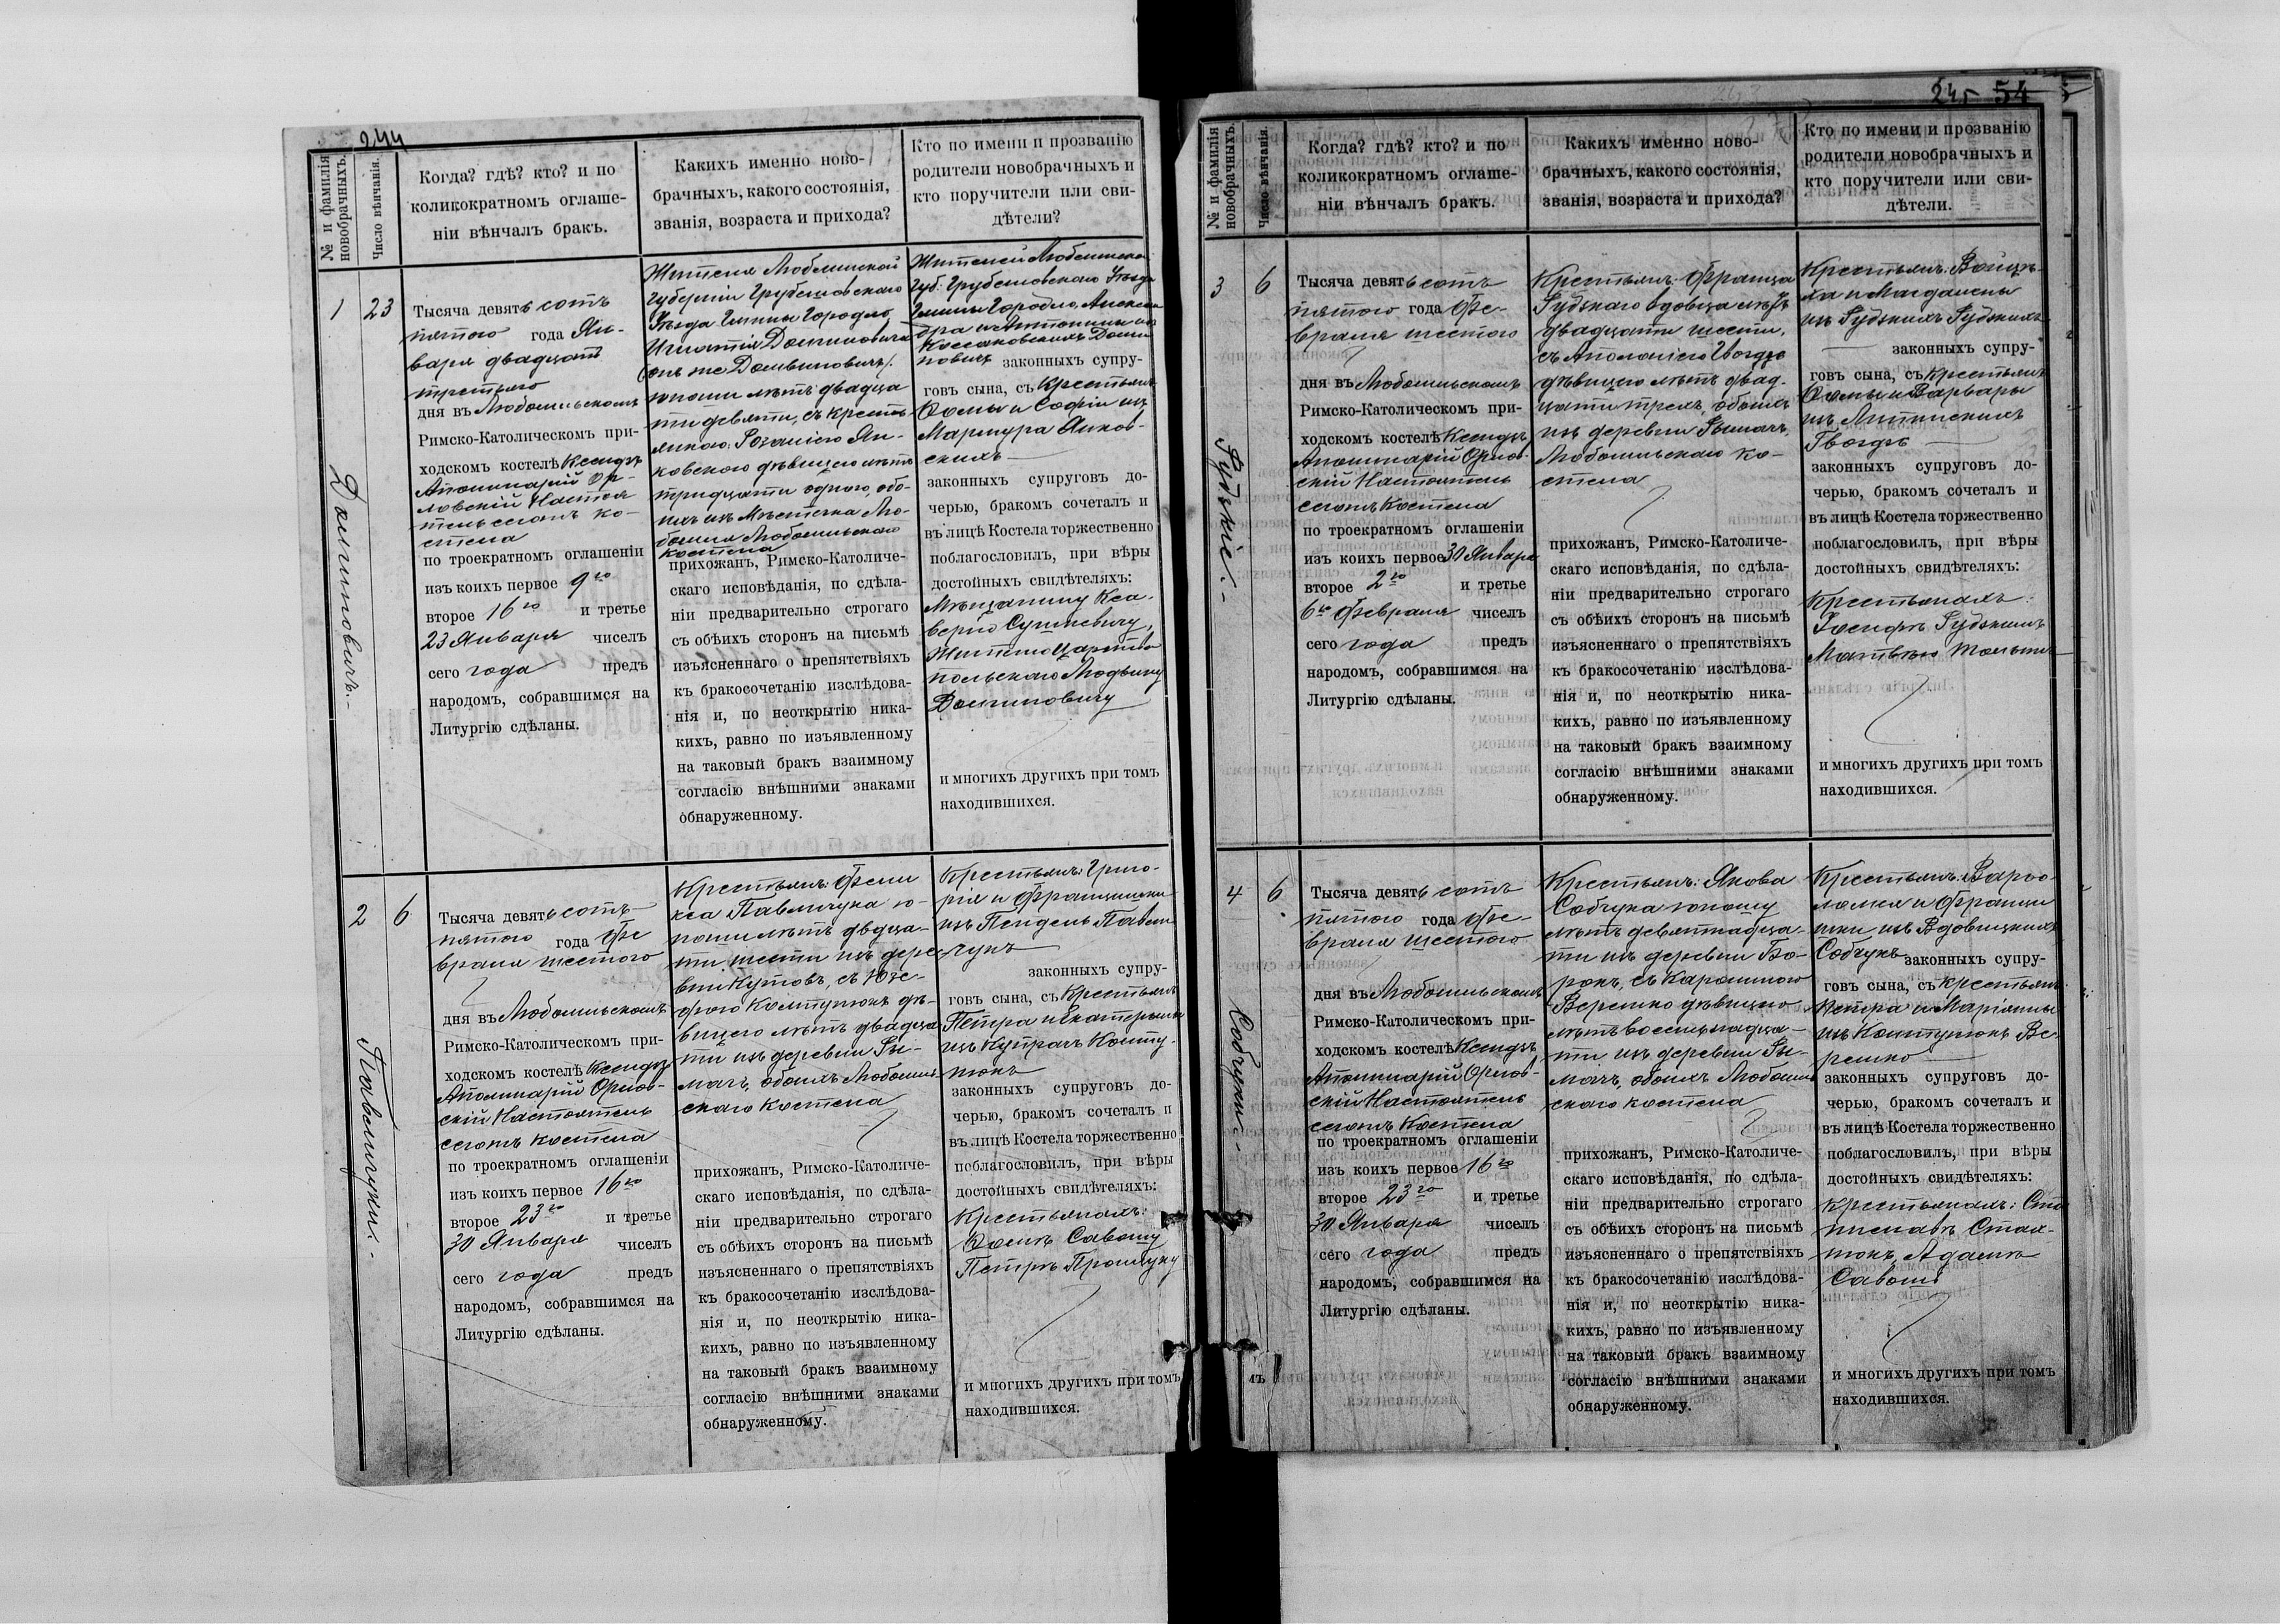 244
№ и фамилія новобрачныхъ.
Число вѣнчанія.
Когда? гдѣ? кто? и по
коликократномъ оглаше-
ніи вѣнчалъ бракъ.
Какихъ именно ново-
брачныхъ, какого состоянія,
званія, возраста и прихода?
Кто по имени и прозванію
родители новобрачныхъ и
кто поручители или сви-
дѣтели?
1
Долиновичъ.-
23
Тысяча девятьсотъ
пятого года Ян-
варя двадцать
третьяго
дня въ Любомльскомъ
Римско-Католическомъ при-
ходскомъ костелѣ Ксендзъ
Аполинарій Ор-
ловскій Настоя
тель сегожъ ко-
стела
по троекратномъ оглашеніи
изъ коихъ первое 9го
второе 16го и третье
23 Января чиселъ
сего года предъ
народомъ, собравшимся на
Литургію сдѣланы.
Жителя Люблинской
Губерніи Грубешовскаго
Уѣзда Гмины Городло
Игнатія
онъ же
юноши лѣтъ двадца
ти девяти, съ кресть
янкою: Розаліею Ян-
ковскою дѣвицею лѣтъ
тридцати одного, обо-
ихъ изъ Мѣстечка Лю-
бомля Любомльскаго
костела
прихожанъ, Римско-Католиче-
скаго исповѣданія, по сдѣла-
ніи предварительно строгаго
съ обѣихъ сторонъ на письмѣ
изъясненнаго о препятствіяхъ
къ бракосочетанію изслѣдова-
нія и, по неоткрытію ника-
кихъ, равно по изъявленному
на таковый бракъ взаимному
согласію внѣшними знаками
обнаруженному.
Жителей Люблинской
Губ. Грубешовскаго Уѣзда
Гмины Городло, Алексан
дра и Антонины изъ
Коссаковскихъ
законныхъ супру-
говъ сына, съ Крестьянъ
Ѳомы и Софіи изъ
Мармура Янков-
скихъ
законныхъ супруговъ до-
черью, бракомъ сочеталъ и
въ лицѣ Костела торжественно
поблагословилъ, при вѣры
достойныхъ свидѣтеляхъ:
Мѣщанину Кса-
верію Сушкевичу,
Жителю Царства
польскаго Людвигу
Долиновичу
и многихъ другихъ при томъ
находившихся.
2
Павличуки.-
6
Тысяча девятьсотъ
пятого года Фе
враля шестого
дня въ Любомльскомъ
Римско-Католическомъ при-
ходскомъ костелѣ Ксендзъ
Аполинарій Орлов-
скій Настоятель
сегожъ костела
по троекратномъ оглашеніи
изъ коихъ первое 16го
второе 23го и третье
30 Января чиселъ
сего года предъ
народомъ, собравшимся на
Литургію сдѣланы.
Крестьянъ: Фели
кса Павличука ю-
ноши лѣтъ двадца-
ти шести изъ дере-
вни Кутовъ, съ Юзе-
фою Колтунюкъ дѣ-
вицею лѣтъ двадца
ти изъ деревни Ры-
мачъ, обоихъ Любомль
скаго костела
прихожанъ, Римско-Католиче-
скаго исповѣданія, по сдѣла-
ніи предварительно строгаго
съ обѣихъ сторонъ на письмѣ
изъясненнаго о препятствіяхъ
къ бракосочетанію изслѣдова-
нія и, по неоткрытію ника-
кихъ, равно по изъявленному
на таковый бракъ взаимному
согласію внѣшними знаками
обнаруженному.
Крестьянъ: Григо-
рія и Францишки
изъ Пендель Павли
чукъ
законныхъ супру-
говъ сына, съ Крестьянъ
Петра и Екатерины
изъ
законныхъ супруговъ до-
черью, бракомъ сочеталъ и
въ лицѣ Костела торжественно
поблагословилъ, при вѣры
достойныхъ свидѣтеляхъ:
Крестьянахъ:
Ѳомѣ Савошу
Петрѣ
и многихъ другихъ при томъ
находившихся.
245 54
№ и фамилія новобрачныхъ.
Число вѣнчанія.
Когда? гдѣ? кто? и по
коликократномъ оглаше-
ніи вѣнчалъ бракъ.
Какихъ именно ново-
брачныхъ, какого состоянія,
званія, возраста и прихода?
Кто по имени и прозванію
родители новобрачныхъ и
кто поручители или сви-
дѣтели.
3
Рудзкіе.-
6
Тысяча девятьсотъ
пятого года Фе-
враля шестого
дня въ Любомльскомъ
Римско-Католическомъ при-
ходскомъ костелѣ Ксендзъ
Аполинарій Орлов-
скій Настоятель
сегожъ Костела
по троекратномъ оглашеніи
изъ коихъ первое 30 Января
второе 2го и третье
6го Февраля чиселъ
сего года предъ
народомъ, собравшимся на
Литургію сдѣланы.
Крестьянъ: Франца
Рудзкаго вдовца лѣтъ
двадцати шести,
съ Аполоніею Гвоздь
дѣвицею лѣтъ двад-
цати трехъ, обоихъ
изъ деревни Рымачъ,
Любомльскаго ко-
стела
прихожанъ, Римско-Католиче-
скаго исповѣданія, по сдѣла-
ніи предварительно строгаго
съ обѣихъ сторонъ на письмѣ
изъясненнаго о препятствіяхъ
къ бракосочетанію изслѣдова-
нія и, по неоткрытію ника-
кихъ, равно по изъявленному
на таковый бракъ взаимному
согласію внѣшними знаками
обнаруженному.
Крестьянъ: Войцѣ-
ха и Магдалены
изъ Рудзкихъ Рудзкихъ
законныхъ супру-
говъ сына, съ Крестьянъ
Ѳомы и Варвары
изъ Литвинскихъ
Гвоздь
законныхъ супруговъ до-
черью, бракомъ сочеталъ и
въ лицѣ Костела торжественно
поблагословилъ, при вѣры
достойныхъ свидѣтеляхъ:
Крестьянахъ:
Іосифѣ Рудзкимъ
Матвѣю
и многихъ другихъ при томъ
находившихся.
4
Собчуки.-
6
Тысяча девятьсотъ
пятого года Фе-
враля шестого
дня въ Любомльскомъ
Римско-Католическомъ при-
ходскомъ костелѣ Ксендзъ
Аполинарій Орлов-
скій Настоятель
сегожъ Костела
по троекратномъ оглашеніи
изъ коихъ первое 16го
второе 23го и третье
30 Января чиселъ
сего года предъ
народомъ, собравшимся на
Литургію сдѣланы.
Крестьянъ: Якова
Собчука юношу
лѣтъ девятнадца-
ти изъ деревни Бо-
рокъ, съ Каролиною
Верешко дѣвицею
лѣтъ восемьнадца-
ти изъ деревни Ры-
мачъ, обоихъ Любомль
скаго костела
прихожанъ, Римско-Католиче-
скаго исповѣданія, по сдѣла-
ніи предварительно строгаго
съ обѣихъ сторонъ на письмѣ
изъясненнаго о препятствіяхъ
къ бракосочетанію изслѣдова-
нія и, по неоткрытію ника-
кихъ, равно по изъявленному
на таковый бракъ взаимному
согласію внѣшними знаками
обнаруженному.
Крестьянъ: Варѳо-
ломея и Францы
шки изъ Вдовицкихъ
Собчукъ законныхъ супру-
говъ сына, съ крестьянъ
Петра и Маріянны
изъ Колтунюкъ Ве-
решко
законныхъ супруговъ до-
черью, бракомъ сочеталъ и
въ лицѣ Костела торжественно
поблагословилъ, при вѣры
достойныхъ свидѣтеляхъ:
Крестьянахъ: Ста
ниславѣ Стал-
Адамѣ
Савошѣ
и многихъ другихъ при томъ
находившихся.